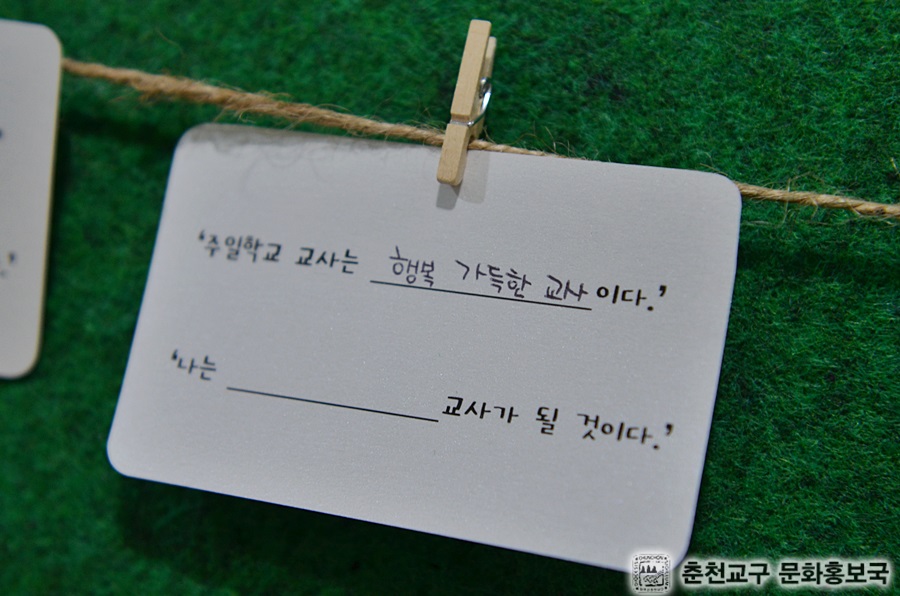 '주일학교 교사는 행복 가득한 교사 이다.'
'나는 ____________ 교사가 될 것이다.'
춘천교구 문화홍보국